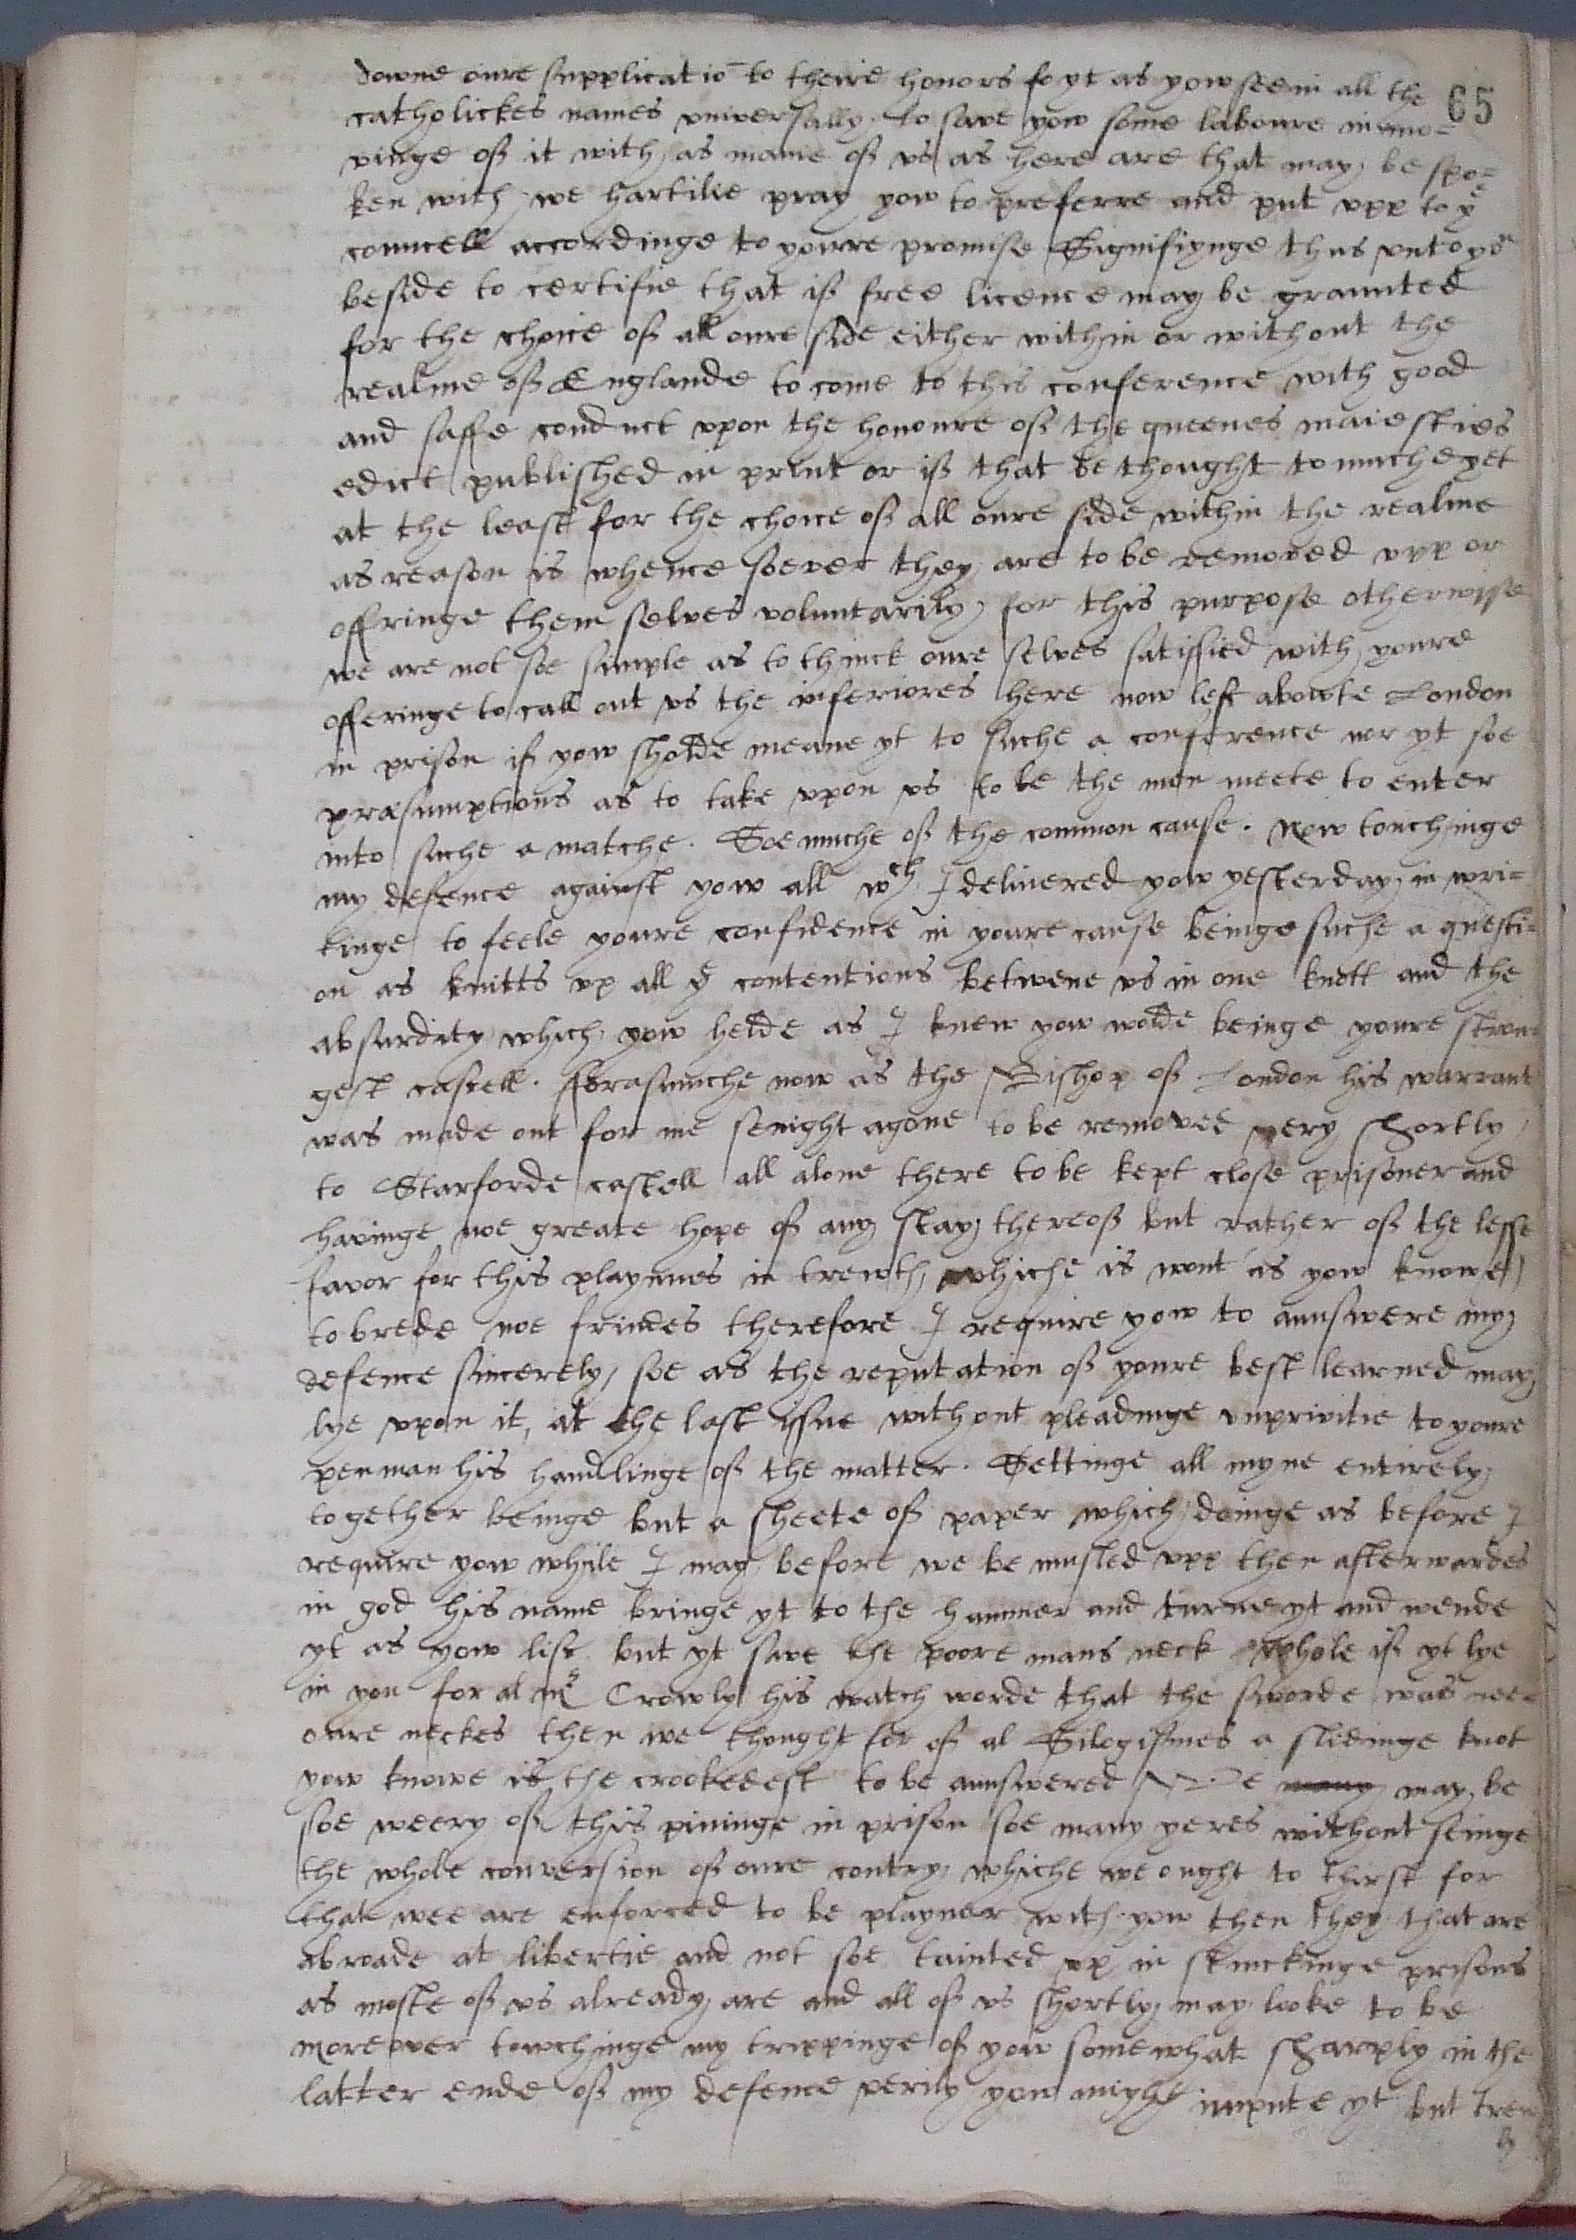 downe oure supplicatiō to theire honors for yt as yow see in all the
65
catholickes names universally. to save yow some laboure in mo=
vinge off it with as manie off us as here are that may be spo=
ken with we hartilie pray yow to preferre and put upp to yͤ
councell accordinge to youre promise Signifiynge thus unto yoᵘ
beside to certifie that iff free licence may be graunted
for the choice off all oure side either within or without the
realme off Englande to come to this conference with good
and saffe conduct upon the honoure off the queenes maiesties
edict published in print or iff that be thought to muche yet
at the least for the choice off all oure side within the realme
as reason is whence soever they are to be removed upp or
offringe them selves voluntarily for this purpose otherwise
we are not soe simple as to thinck oure selves satisfied with youre
offeringe to call out us the inferiores here now left abowte London
in prison if yow sholde meane yt to suche a conference nor yt soe
præsumptious as to take upon us to be the men meete to enter
into suche a matche. Soe muche off the common cause. Now touchinge
my defence against yow all wᶜʰ I delivered yow yesterday in wri=
tinge to feele youre confidence in youre cause beinge suche a questi=
on as knitts up all yͤ contentions betwene us in one knott and the
absurdity which yow helde as I knew yow wolde beinge youre stron
gest castell. fforasmuche now as the Bishop off London his warrant
was made out for me senight agone to be removed very shortly
to Starforde castell all alone there to be kept close prisoner and
havinge noe greate hope off any stay thereoff but rather off the lesse
favor for this playnnes in trewth whiche is wont as yow knowe
to brede noe frindes therefore I require yow to aunswere my
defence sincerely, soe as the reputation off youre best learned may
lye upon it, at the last issue without pleadinge unprivitie to youre
penman his handlinge off the matter. Settinge all myne entirely
together beinge but a sheete off paper which doinge as before I
require yow while I may before we be musled upp then afterwardes
in god his name bringe yt to the hammer and turne yt and wende
yt as yow list but yt save the poore mans neck whole iff yt lye
in you for al mʳ Crowly his watch worde that the sworde was nee=
oure neckes then we thought for off al Silogismes a slidinge knot
yow knowe is the crookedest to be aunswered We may be
soe weery off this pininge in prison soe many yeres without seinge
the whole conversion off oure contry whiche we ought to thirst for
that wee are enforced to be playner with yow then they that are
abroade at libertie and not soe tainted up in stinckinge prisons
as moste off us already are and all off us shortly may looke to be
moreover towchinge my trippinge off yow somewhat sharply in the
latter ende off my defence verily yow might impute yt but trew
ly